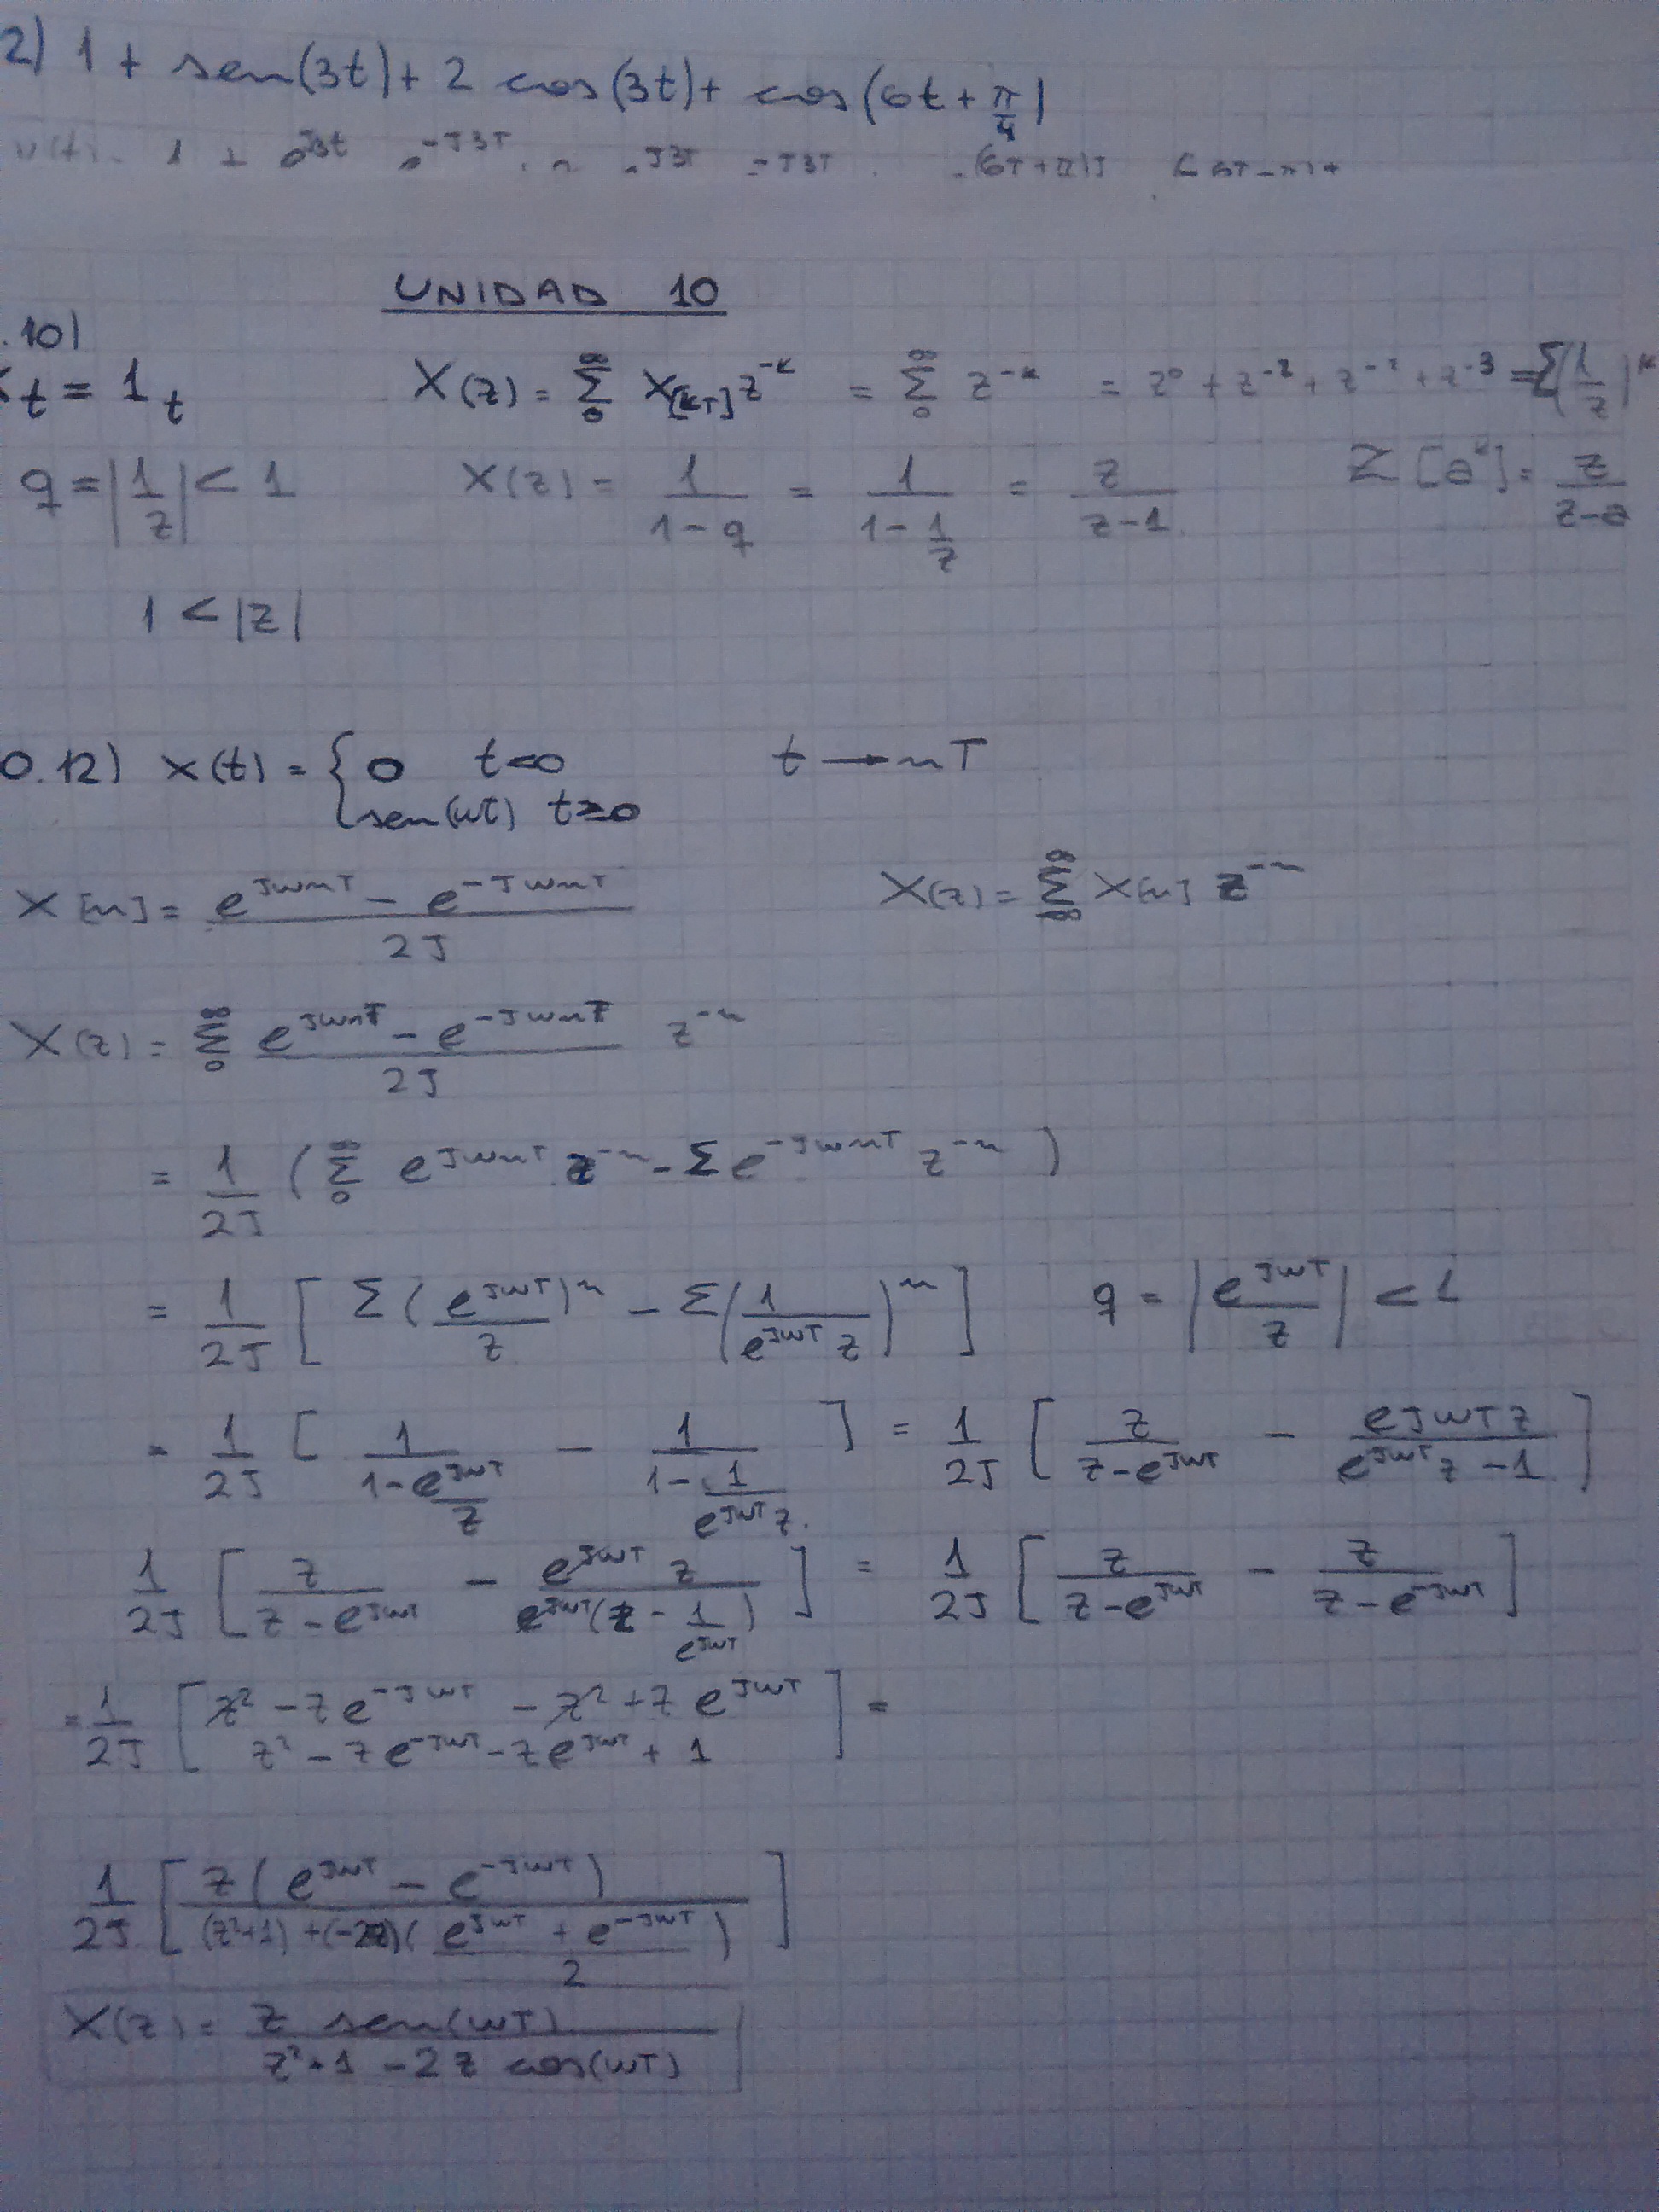 2) 1 + sen(3t) + 2 cos(3t) + cos(6t + π/4)
UNIDAD 10
.10)
t = 1t X(z) = Σ₀^∞ X[kT] z^-k = Σ₀^∞ z^-k = z^0 + z^-2 + z^-2 + z^-3 = Σ(1/z)^k
q = |1/z| < 1 X(z) = 1/(1-q) = 1/(1-1/z) = z/(z-1) Z[a^k] = z/(z-a)
1 < |z|
0.12) x(t) = { 0 t<0 t → nT
sen(wt) t≥0
X[n] = (e^JwnT - e^-JwnT)/2J X(z) = Σ_∞^∞ X[n] z^-n
X(z) = Σ₀^∞ (e^JwnT - e^-JwnT)/2J z^-n
= 1/2J (Σ₀^∞ e^JwnT . z^-n - Σ e^-JwnT z^-n)
= 1/2J [Σ(e^JwT/z)^n - Σ(1/(e^JwT z))^n] q = |e^JwT/z| < 1
= 1/2J [1/(1-e^JwT/z) - 1/(1-1/(e^JwT z))] = 1/2J [z/(z-e^JwT) - e^JwT z/(e^JwT z - 1)]
1/2J [z/(z-e^JwT) - e^JwT z/(e^JwT(z - 1/e^JwT))] = 1/2J [z/(z-e^JwT) - z/(z-e^-JwT)]
= 1/2J [(z² - z e^-JwT - z² + z e^JwT)/(z² - z e^-JwT - z e^JwT + 1)] =
1/2J [z(e^JwT - e^-JwT)/((z²+1) + (-2z)((e^JwT + e^-JwT)/2))]
X(z) = z sen(wT)/(z²+1 - 2z cos(wT))